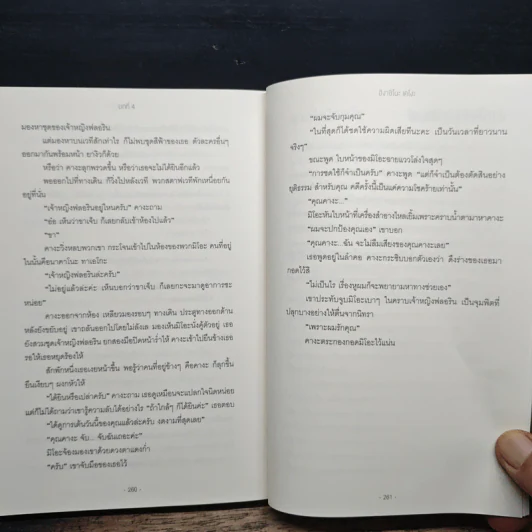 บทที่ 4
มองหาชุดของเจ้าหญิงฟลอริน
แต่มองหาบนเวทีสักเท่าไร ก็ไม่พบชุดสีฟ้าของเธอ ตัวละครอื่นๆ
ออกมากันพร้อมหน้า ยางิวก็ด้วย
หรือว่า คางะลุกพรวดขึ้น หรือว่าเธอจะไม่ได้ยินอีกแล้ว
พอออกไปที่ทางเดิน ก็วิ่งไปหลังเวที พวกสตาฟเวทีพักเหนื่อยกัน
อยู่ที่นั่น
"เจ้าหญิงฟลอรินอยู่ไหนครับ" คางะถาม
"อ๋อ เห็นว่าขาเจ็บ ก็เลยกลับเข้าห้องไปแล้ว"
"ขา"
คางะวิ่งหลบพวกเขา กระโจนเข้าไปในห้องของพวกมิโอะ คนที่อยู่
ในนั้นคือนาคาโนะ ทาเอโกะ
"เจ้าหญิงฟลอรินล่ะครับ"
"ไม่อยู่แล้วล่ะค่ะ เห็นบอกว่าขาเจ็บ ก็เลยกะจะมาดูอาการซะ
หน่อย"
คางะออกจากห้อง เหลียวมองรอบๆ ทางเดิน ประตูทางออกด้าน
หลังยังขยับอยู่ เขาถลันออกไปโดยไม่ลังเล มองเห็นมิโอะนั่งคู้ตัวอยู่ เธอ
ยังสวมชุดเจ้าหญิงฟลอริน ยกสองมือปิดหน้าร่ำไห้ คางะเข้าไปยืนข้างเธอ
รอให้เธอหยุดร้องไห้
สักพักหนึ่งเธอเงยหน้าขึ้น พอรู้ว่าคนที่อยู่ข้างๆ คือคางะ ก็ลุกขึ้น
ยืนเงียบๆ ผงกหัวให้
"ได้ยินหรือเปล่าครับ" คางะถาม เธอดูเหมือนจะแปลกใจนิดหน่อย
แต่ก็ไม่ได้ถามว่าเขารู้ความลับได้อย่างไร "ถ้าใกล้ๆ ก็ได้ยินค่ะ" เธอตอบ
"ได้ดูการเต้นวันนี้ของคุณแล้วล่ะครับ งดงามที่สุดเลย"
"คุณคางะ จับ... จับฉันเถอะค่ะ"
มิโอะจ้องมองเขาด้วยดวงตาแดงก่ำ
"ครับ" เขาจับมือของเธอไว้
- 260 -
ฮิงาชิโนะ เคโงะ
"ผมจะจับกุมคุณ"
"ในที่สุดก็ได้ชดใช้ความผิดเสียทีนะคะ เป็นวันเวลาที่ยาวนาน
จริงๆ"
ขณะพูด ใบหน้าของมิโอะฉายแววโล่งใจสุดๆ
"การชดใช้ก็จำเป็นครับ" คางะพูด "แต่ก็จำเป็นต้องตัดสินอย่าง
ยุติธรรม สำหรับคุณ คดีครั้งนี้เป็นแค่ความโชคร้ายเท่านั้น"
"คุณคางะ..."
มิโอะหันใบหน้าที่เครื่องสำอางไหลเยิ้มเพราะคราบน้ำตามาหาคางะ
"ผมจะปกป้องคุณเอง" เขาบอก
"คุณคางะ...ฉัน จะไม่ลืมเสียงของคุณคางะเลย"
เธอพูดอยู่ในลำคอ คางะกระซิบบอกตัวเองว่า ดึงร่างของเธอมา
กอดไว้สิ
"ไม่เป็นไร เรื่องหูผมก็จะพยายามหาทางช่วยเอง"
เขาประทับจูบมิโอะเบาๆ ในคราบเจ้าหญิงฟลอริน เป็นจุมพิตที่
ปลุกบางอย่างให้ตื่นจากนิทรา
"เพราะผมรักคุณ"
คางะตระกองกอดมิโอะไว้แน่น
- 261 -